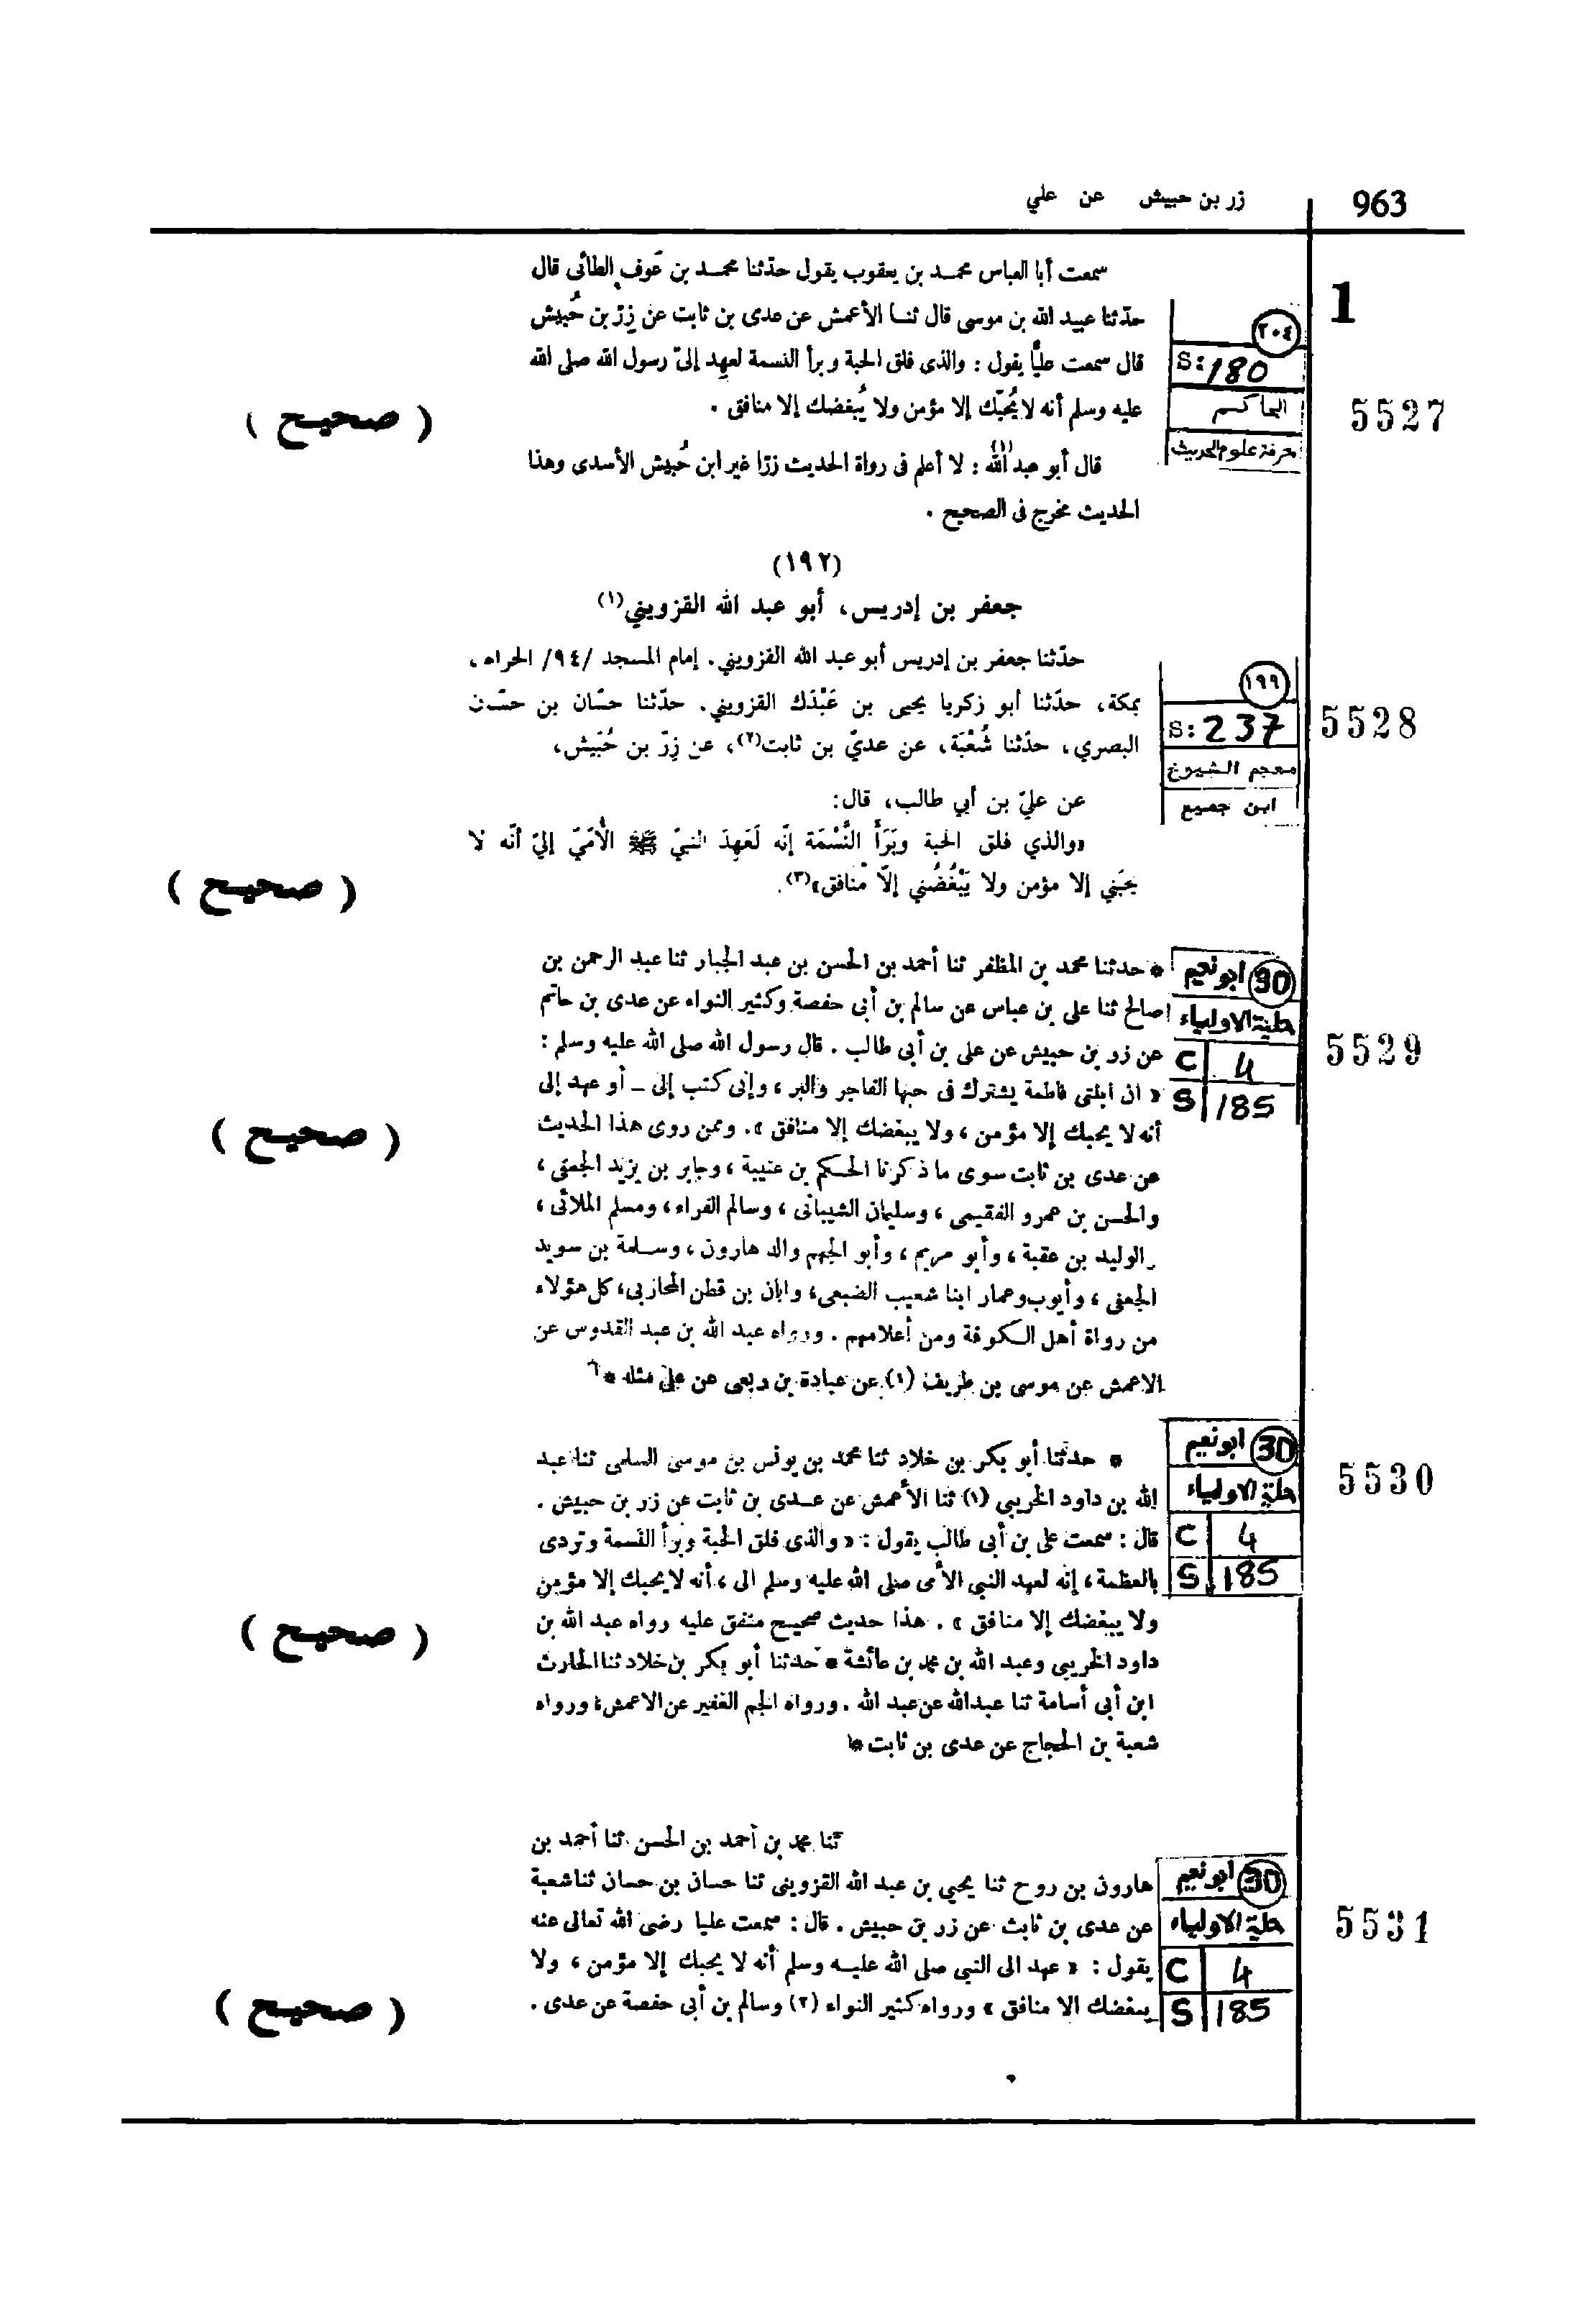 963
زر بن حبيش عن علي
1
سمعت أبا العباس محمد بن يعقوب يقول حدّثنا محمد بن عَوف الطائى قال
حدّثنا عبيد الله بن موسى قال ثنا الأعمش عن عدى بن ثابت عن زِرّ بن حُبيش
قال سمعت عليًّا يقول : والذى فلق الحبة وبرأ النسمة لعهِد إلىّ رسول الله صلى الله
عليه وسلم أنه لا يُحبّك إلا مؤمن ولا يُبغضك إلا منافق .
قال أبو عبد الله (١) : لا أعلم فى رواة الحديث زرّا غير ابن حُبيش الأسدى وهذا
الحديث مخرج فى الصحيح .
٢٠٤
S: 180
الحاكم
معرفة علوم الحديث
5527
( صحيح )
(١٩٢)
جعفر بن إدريس، أبو عبد الله القزويني(١)
حدّثنا جعفر بن إدريس أبو عبد الله القزويني. إمام المسجد /٩٤/ الحرام،
بمكة، حدّثنا أبو زكريا يحيى بن عَبْدَك القزويني. حدّثنا حسّان بن حسّان
البصري، حدّثنا شُعْبَة، عن عديّ بن ثابت(٢)، عن زِرّ بن حُبَيش،
عن عليّ بن أبي طالب، قال:
«والذي فلق الحبة وبَرَأَ النَّسْمَة إنّه لَعَهِدَ النبيّ ﷺ الأُمّيّ إليّ أنّه لا
يحبّني إلا مؤمن ولا يَبْغُضُني إلاّ منافق»(٣).
١٩٩
S: 237
معجم الشيوخ
ابن جميع
5528
( صحيح )
* حدثنا محمد بن المظفر ثنا أحمد بن الحسن بن عبد الجبار ثنا عبد الرحمن بن
صالح ثنا على بن عباس عن سالم بن أبى حفصة وكثير النواء عن عدى بن حاتم
عن زر بن حبيش عن على بن أبى طالب . قال رسول الله صلى الله عليه وسلم :
« ان ابنتى فاطمة يشترك فى حبها الفاجر والبر ، وإنى كتب إلى ــ أو عهد إلى
أنه لا يحبك إلا مؤمن ، ولا يبغضك إلا منافق ». وممن روى هذا الحديث
عن عدى بن ثابت سوى ما ذكرنا الحكم بن عتيبة ، وجابر بن يزيد الجعفى ،
والحسن بن عمرو الفقيمى ، وسليمان الشيبانى ، وسالم الفراء ، ومسلم الملائى ،
والوليد بن عقبة ، وأبو مريم ، وأبو الجهم والد هارون ، وسلمة بن سويد
الجعفى ، وأيوب وعمار ابنا شعيب الضبعى ، وابان بن قطن المحاربى ، كل هؤلاء
من رواة أهل الكوفة ومن أعلامهم . ورواه عبد الله بن عبد القدوس عن
الاعمش عن موسى بن طريف (١) عن عبادة بن ربعى عن على مثله *
30 ابو نعيم
حلية الاولياء
C 4
S 185
5529
( صحيح )
* حدثنا أبو بكر بن خلاد ثنا محمد بن يونس بن موسى السلمى ثنا عبد
الله بن داود الخريبى (١) ثنا الأعمش عن عدى بن ثابت عن زر بن حبيش .
قال : سمعت على بن أبى طالب يقول : « والذى فلق الحبة وبرأ النسمة وتردى
بالعظمة ، إنه لعهد النبى الأمى صلى الله عليه وسلم الى ، أنه لا يحبك إلا مؤمن
ولا يبغضك إلا منافق » . هذا حديث صحيح متفق عليه رواه عبد الله بن
داود الخريبى وعبد الله بن محمد بن عائشة * حدثنا أبو بكر بن خلاد ثنا الحارث
ابن أبى أسامة ثنا عبد الله عن عبد الله . ورواه الجم الغفير عن الاعمش ، ورواه
شعبة بن الحجاج عن عدى بن ثابت *
30 ابو نعيم
حلية الاولياء
C 4
S 185
5530
( صحيح )
ثنا محمد بن أحمد بن الحسن ثنا أحمد بن
هارون بن روح ثنا يحيى بن عبد الله القزوينى ثنا حسان بن حسان ثنا شعبة
عن عدى بن ثابت عن زر بن حبيش . قال : سمعت عليا رضى الله تعالى عنه
يقول : « عهد الى النبى صلى الله عليه وسلم أنه لا يحبك إلا مؤمن ، ولا
يبغضك الا منافق » ورواه كثير النواء (٢) وسالم بن أبى حفصة عن عدى .
30 ابو نعيم
حلية الاولياء
C 4
S 185
5531
( صحيح )